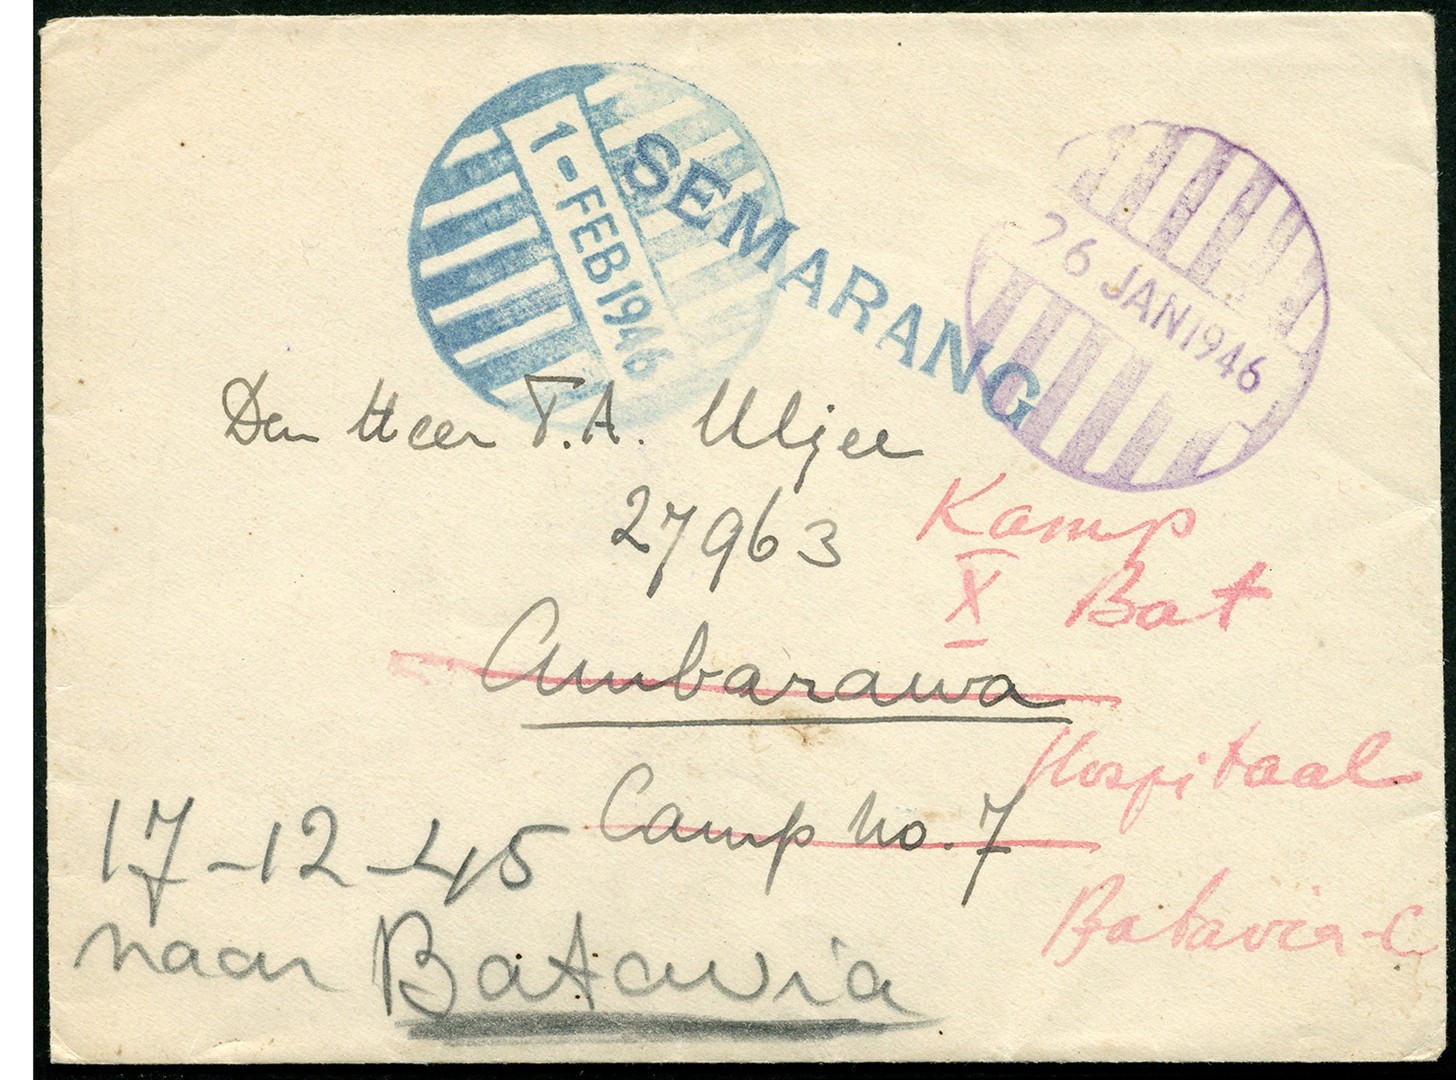 1-FEB 1946
SEMARANG
26 JAN 1946
Den Heer T.A. Uljee
27963
Kamp
X Bat
Ambarawa
Hospitaal
Camp No. 7
17-12-45
naar Batavia
Batavia-C